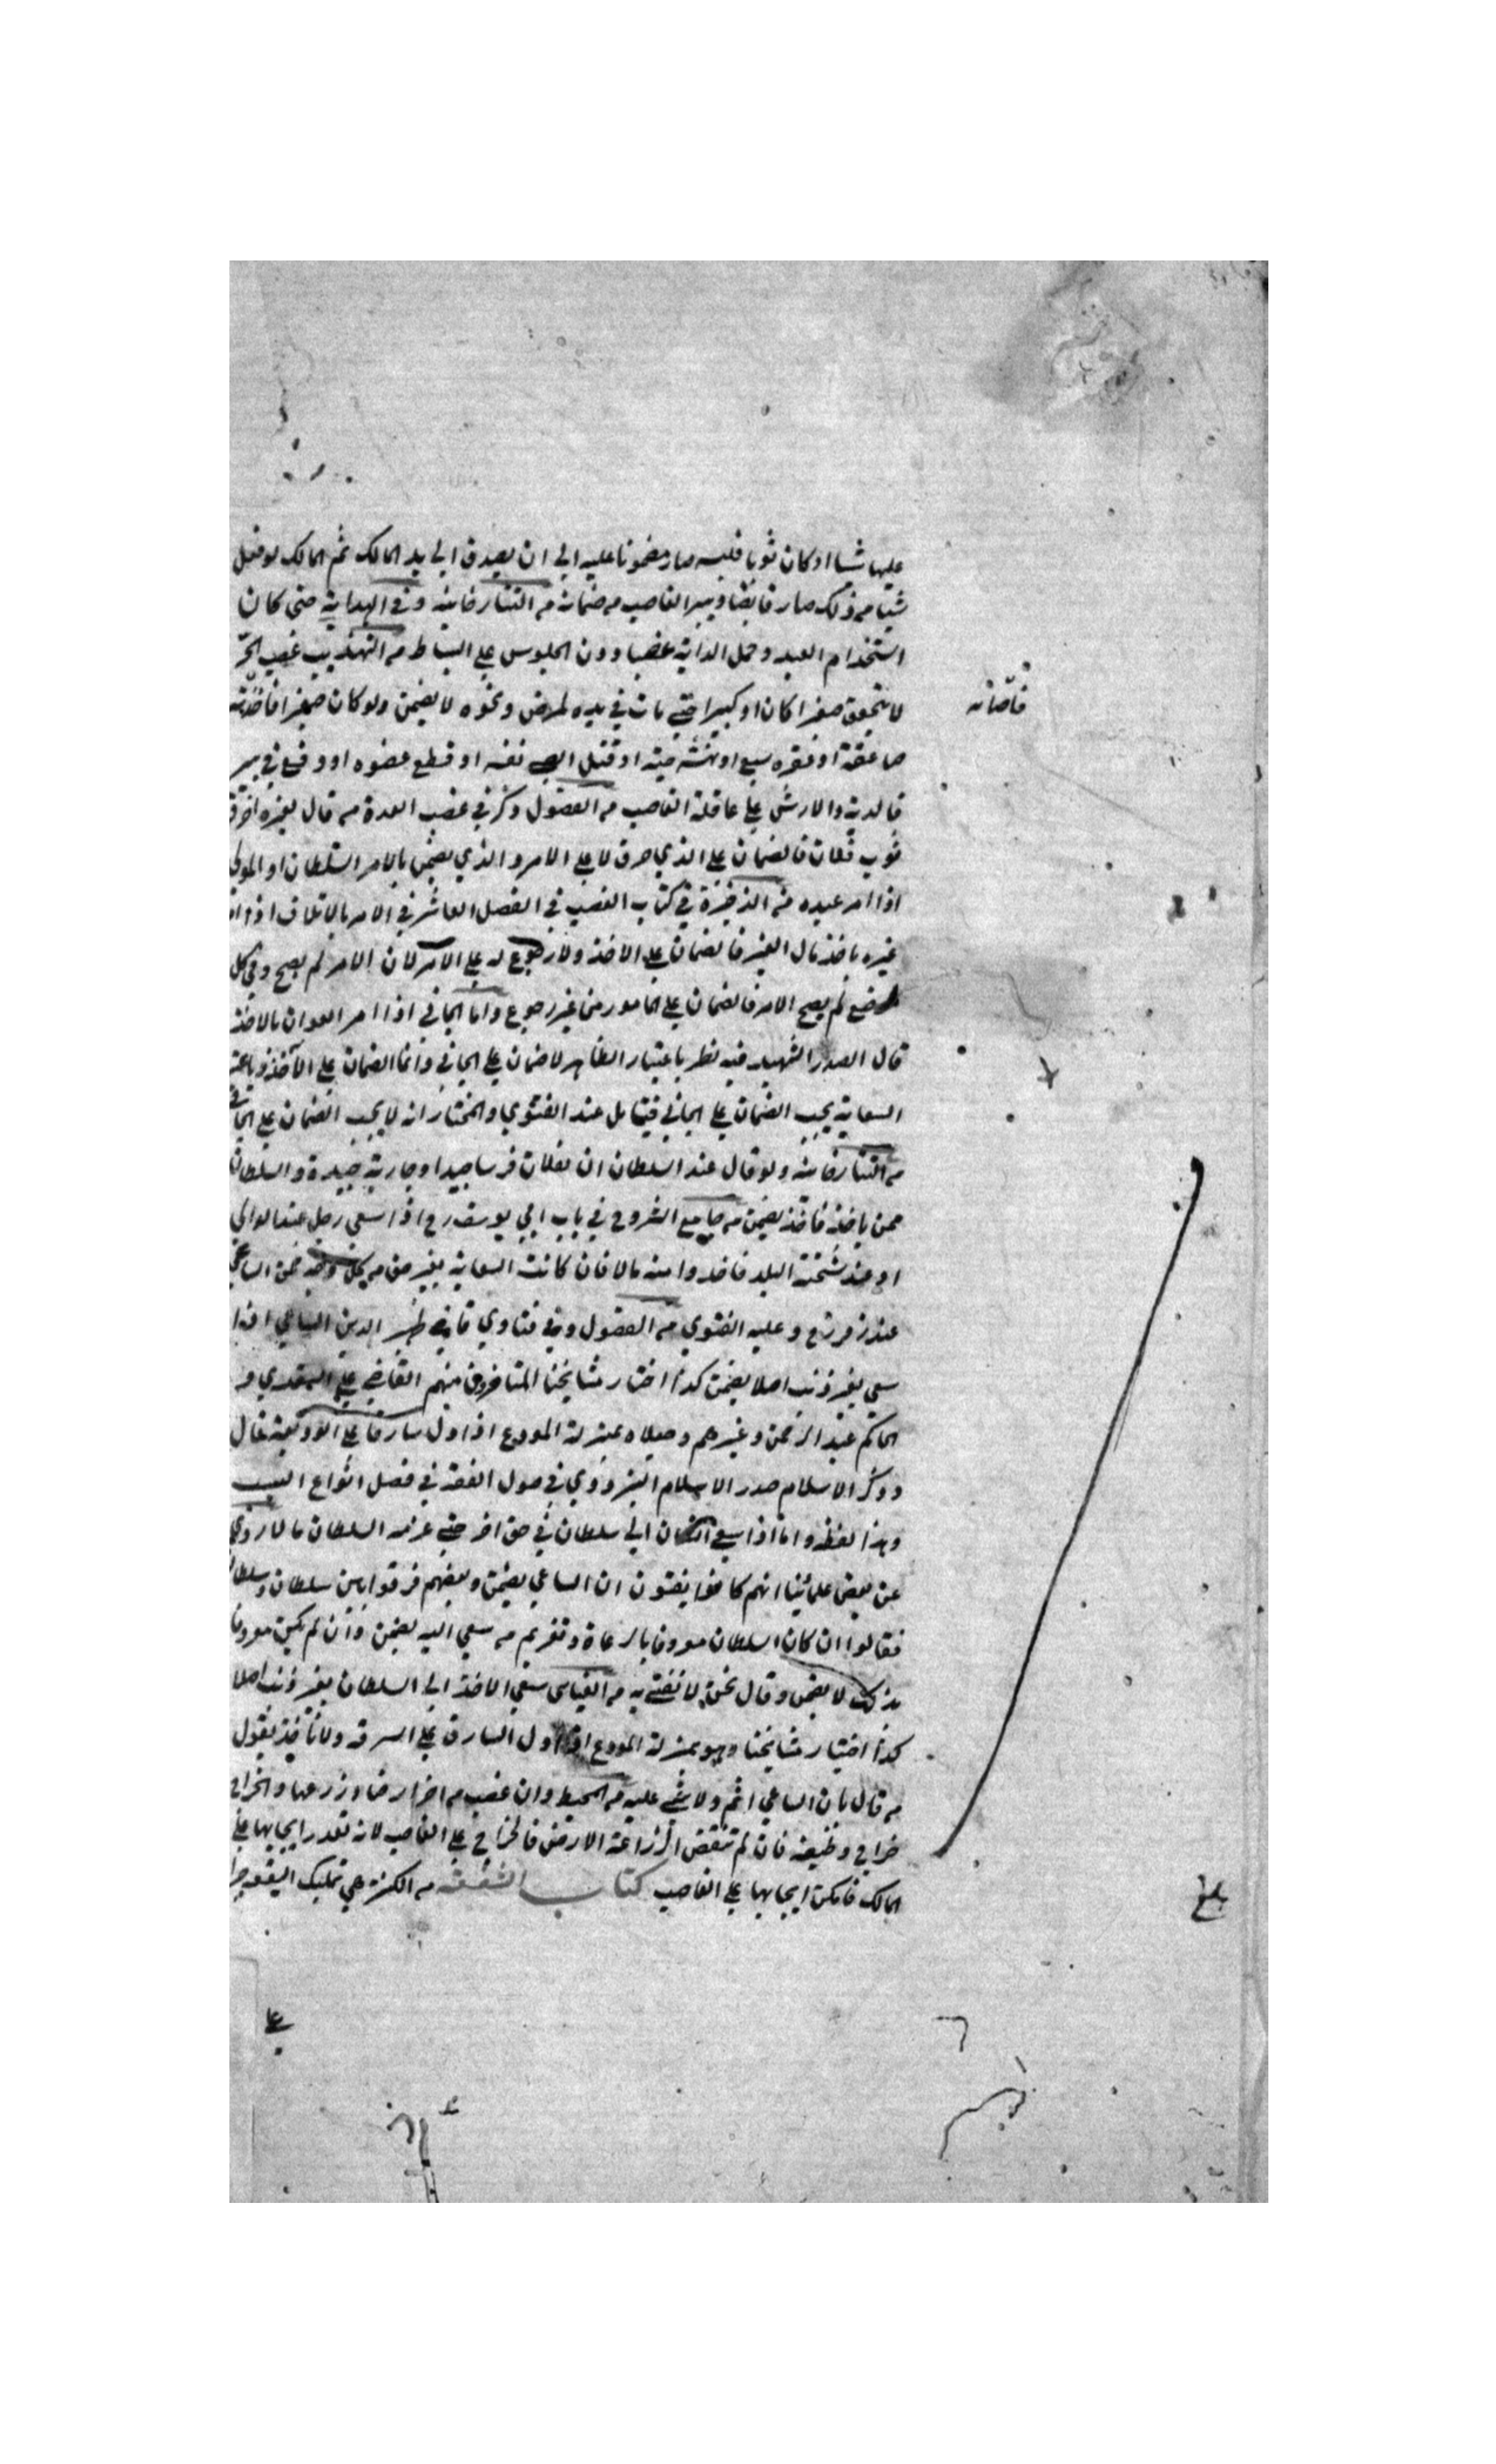 عليها شيئا او كان ثوبا فلبسه صار مضمونا عليه الي ان يصدق الي يد المالك ثم المالك لو فعل
شيئا من ذلك صار قابضا ويبرا الغاصب من ضمانه من التتارخانية وفي الهداية حتى كان
استخدام العبد وحمل الدابة غصبا دون الجلوس علي البساط من التهذيب غصب الحر
لا يتحقق صغيرا كان او كبيرا حتي مات في يده لمرض ونحوه لا يضمن ولو كان صغيرا فاخذته
قاضخانه
صاعقة او عقره سبع او نهشته حية او قتل الصبي نفسه او قطع عضوه او وقع في بير
فالدية والارش علي عاقلة الغاصب من الفصول وذكر في غصب العدة من قال لغيره احرق
ثوب فلان فالضمان علي الذي حرق لا علي الامر والذي يضمن بالامر السلطان او المولي
اذا امر عبده من الذخيرة في كتاب الغصب في الفصل العاشر في الامر بالاتلاف اذا امر
غيره باخذ مال الغير فالضمان علي الاخذ ولا رجوع له علي الامر لان الامر لم يصح وفي كل
موضع لم يصح الامر فالضمان علي المامور من غير رجوع واما الجاني اذا امر العوان بالاخذ
قال الصدر الشهيد فيه نظر باعتبار الظاهر لا ضمان علي الجاني وانما الضمان علي الآخذ وباعتبار
السعاية يجب الضمان علي الجاني فيتامل عند الفتوي والمختار انه لا يجب الضمان علي الجاني
من التتارخانية ولو قال عند السلطان ان لفلان فرسا جيدا وجارية جيدة والسلطان
ممن ياخذ فاخذ يضمن من جامع الشروح في باب ابي يوسف رح اذا سعي رجل عند الوالي
او عند شحنة البلد فاخذوا منه مالا فان كانت السعاية بغير حق من كل وجه ضمن الساعي
عند زفر رح وعليه الفتوي من الفصول وفي فتاوي قاضي ظهير الدين الساعي اذا
سعي بغير ذنب اصلا يضمن كذا اختار مشايخنا المتاخرون منهم القاضي علي السغدي و
الحاكم عبد الرحمن وغيرهم وجعلاه بمنزلة المودع اذا دل سارقا علي الوديعة قال
وذكر الاسلام صدر الاسلام البزدوي في صول الفقه في فصل انواع السبب
وهذا لفظه واما اذا سعي انسان الي سلطان في حق اخر حتي غرمه السلطان مالا روي
عن بعض علمائينا انهم كانوا يفتون ان الساعي يضمن وبعضهم فرقوا بين سلطان وسلطان
فقالوا ان كان السلطان معروفا بالدعارة وتغريم من سعي اليه يضمن وان لم يكن معروفا
بذلك لا يضمن وقال نحن لا نفتي به من القياس سعي الاخذ الي السلطان بغير ذنب اصلا
كذا اختيار مشايخنا وهو بمنزلة المودع اذا دل السارق علي السرقه ولا ناخذ بقول
من قال بان الساعي اثم ولا شي عليه من المحيط وان غصب من اخر ارضا وزرعها والخراج
خراج وظيفة فان لم تنقص الزراعة الارض فالخراج علي الغاصب لانه تعذر ايجابها علي
المالك فامكن ايجابها علي الغاصب كتاب الشفعة من الكنز هي تمليك البقعه جبرا
بلغ